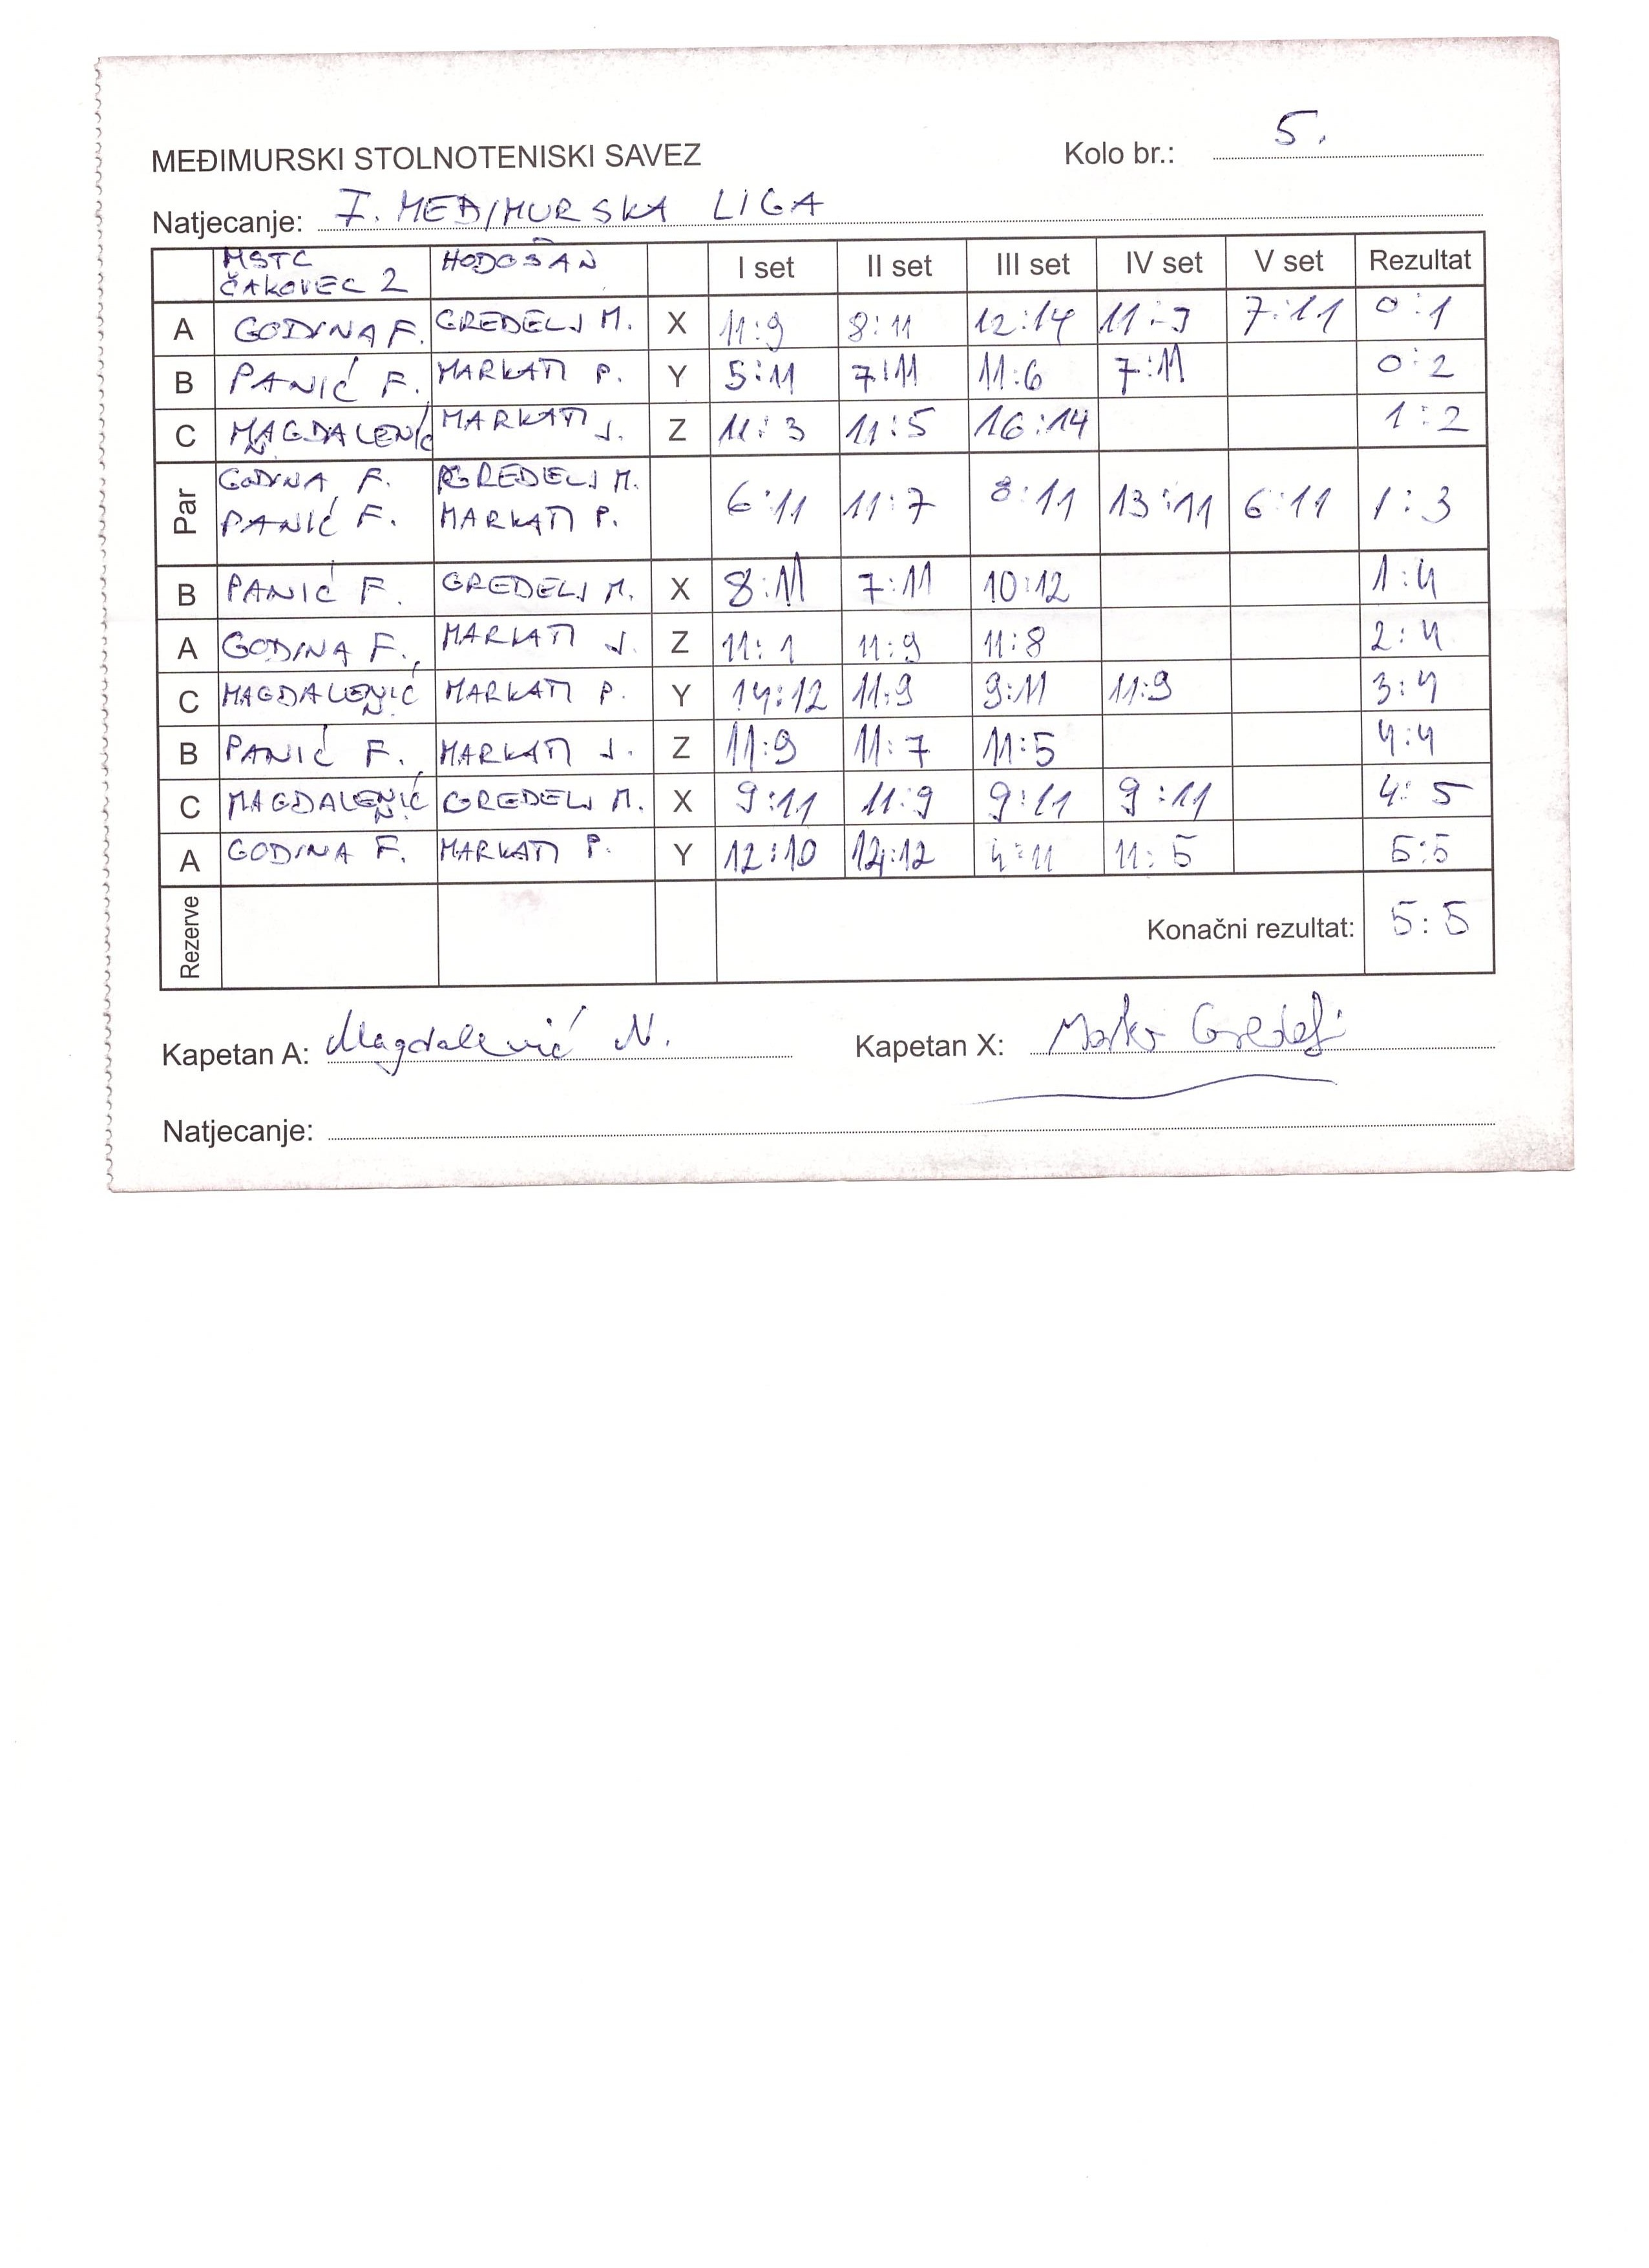 MEĐIMURSKI STOLNOTENISKI SAVEZ Kolo br.: 5.
Natjecanje: I. MEĐIMURSKA LIGA
MSTC ČAKOVEC 2 HODOŠAN I set II set III set IV set V set Rezultat
A GODINA F. GREDELJ M. X 11:9 8:11 12:14 11:9 7:11 0:1
B PANIĆ F. MARKATI P. Y 5:11 7:11 11:6 7:11 0:2
C MAGDALENIĆ N. MARKATI J. Z 11:3 11:5 16:14 1:2
Par GODINA F. PANIĆ F. GREDELJ M. MARKATI P. 6:11 11:7 8:11 13:11 6:11 1:3
B PANIĆ F. GREDELJ M. X 8:11 7:11 10:12 1:4
A GODINA F. MARKATI J. Z 11:1 11:9 11:8 2:4
C MAGDALENIĆ N. MARKATI P. Y 14:12 11:9 9:11 11:9 3:4
B PANIĆ F. MARKATI J. Z 11:9 11:7 11:5 4:4
C MAGDALENIĆ N. GREDELJ M. X 9:11 11:9 9:11 9:11 4:5
A GODINA F. MARKATI P. Y 12:10 14:12 4:11 11:5 5:5
Rezerve Konačni rezultat: 5:5
Kapetan A: Magdalenić N. Kapetan X: Marko Gredelj
Natjecanje: